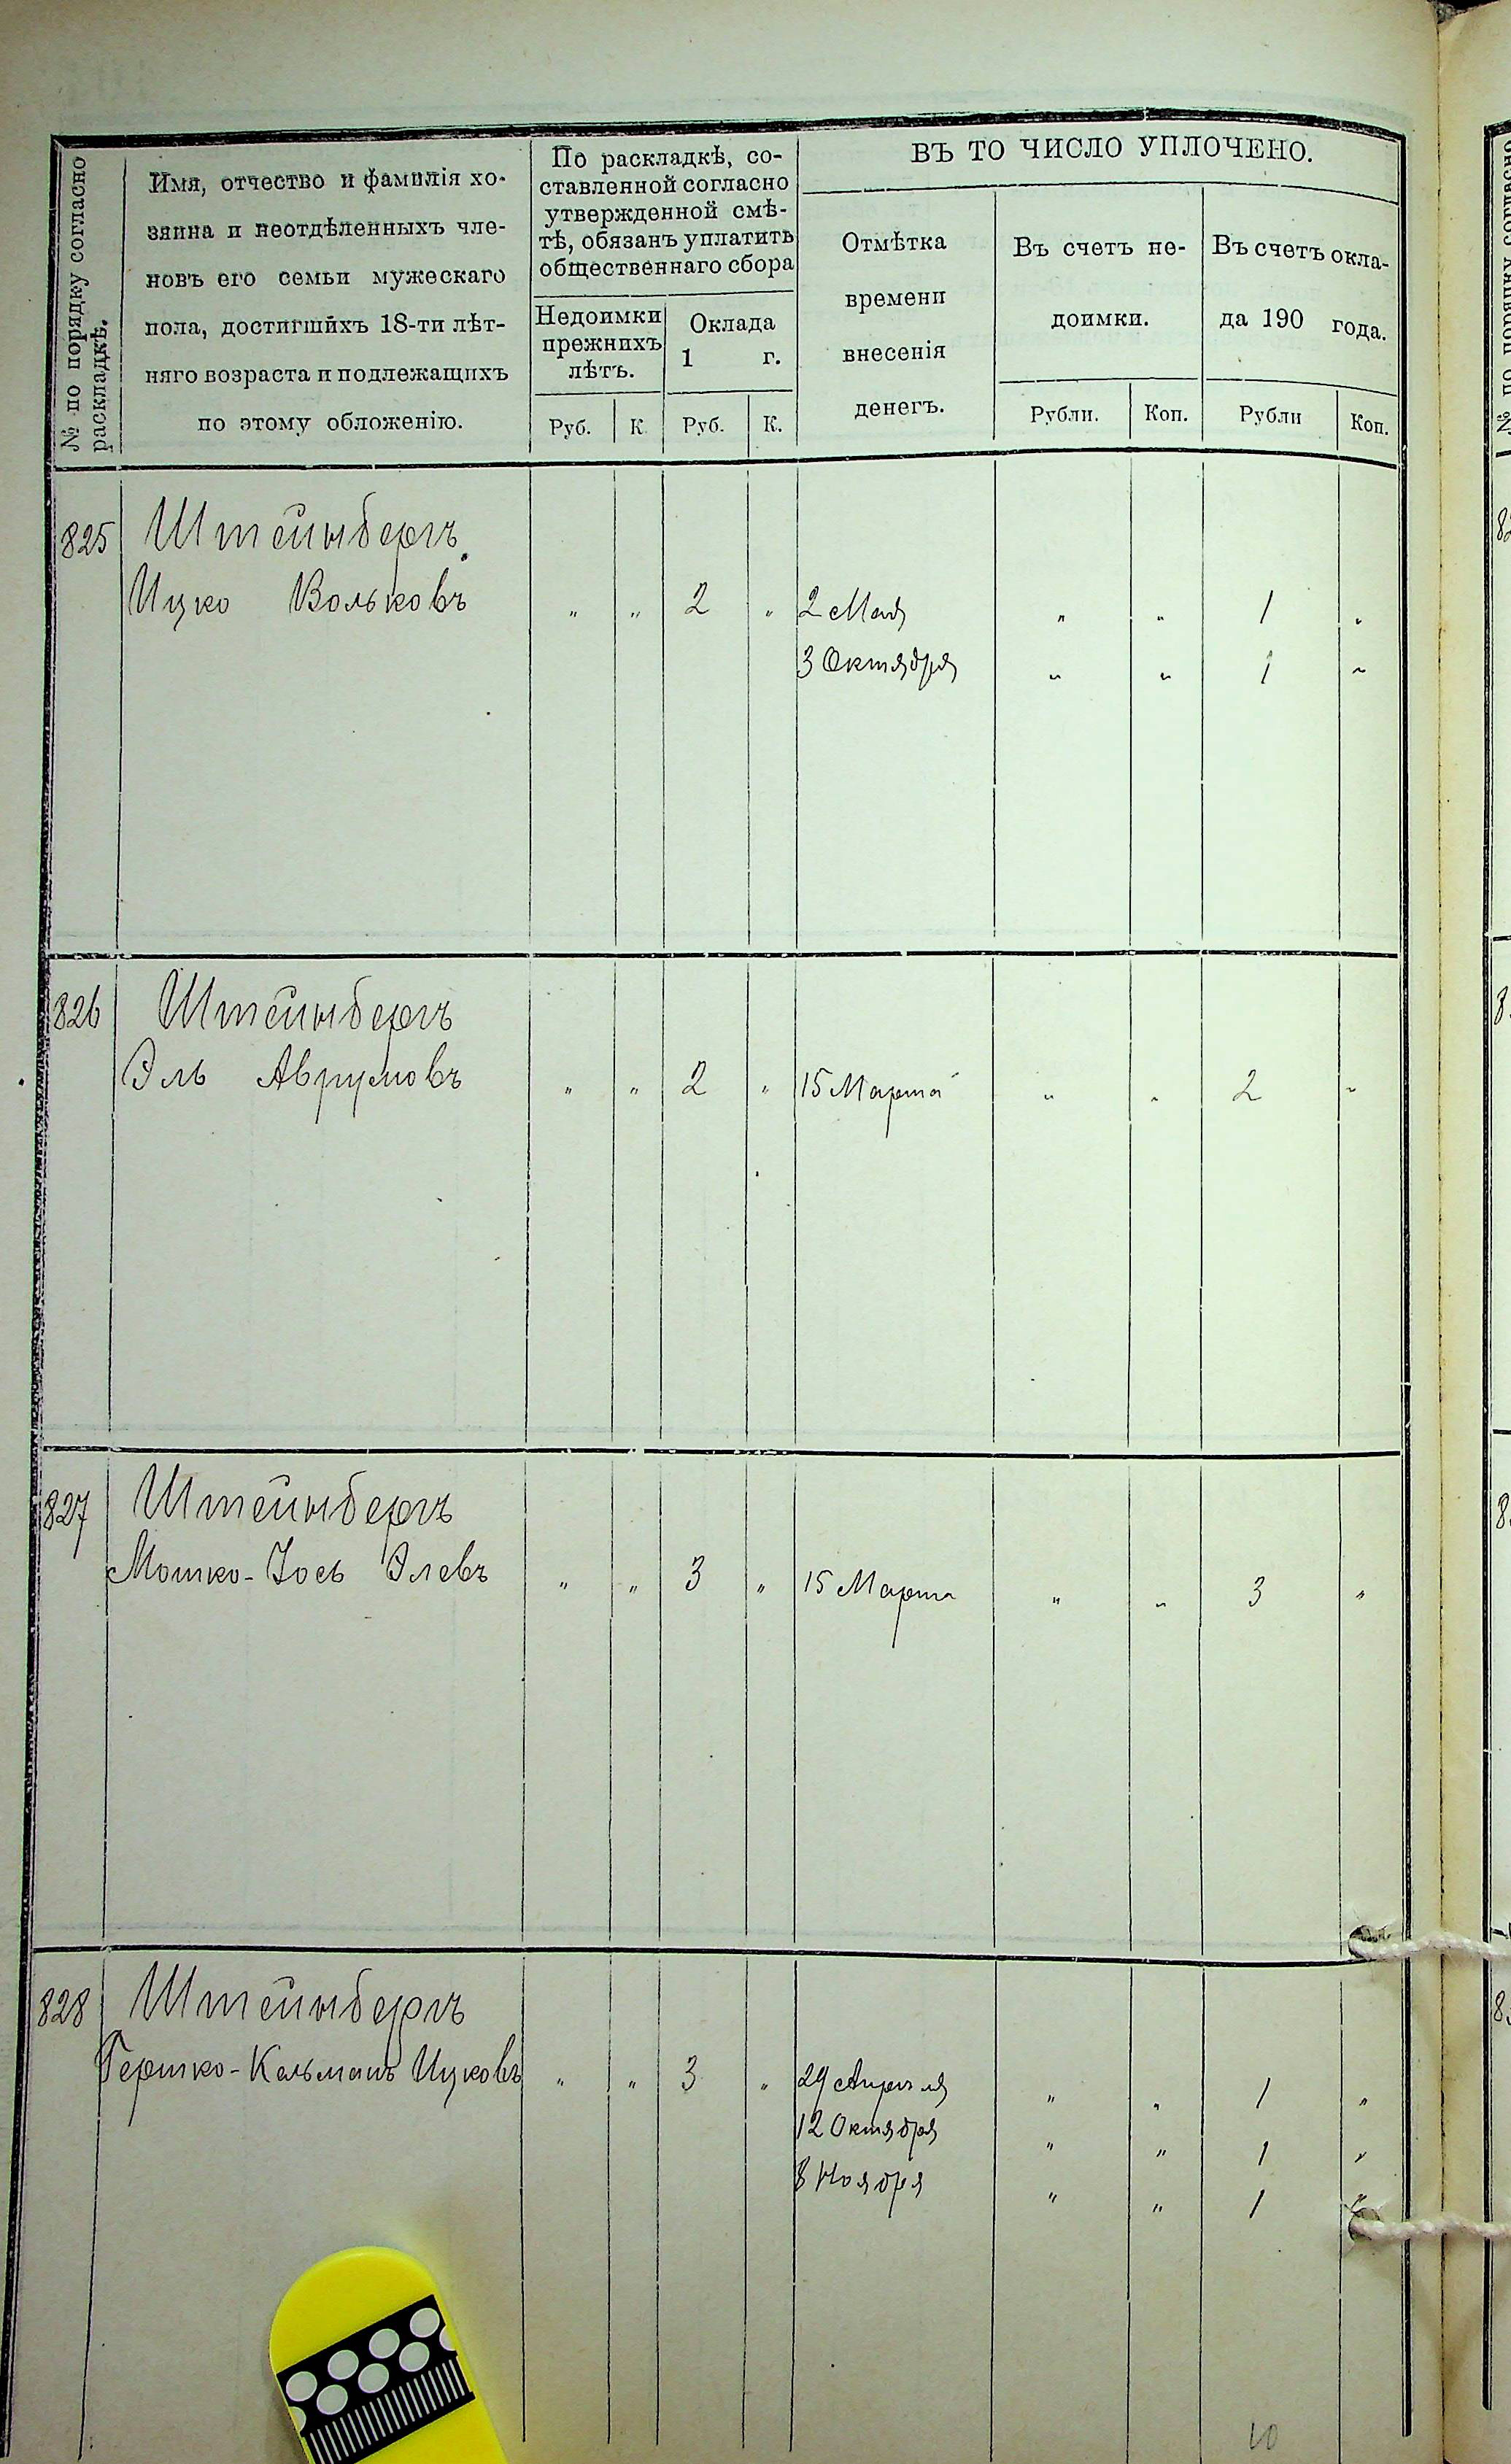 № по порядку согласно
раскладкѣ.
Имя, отчество и фамилія хо-
зяина и неотдѣленныхъ чле-
новъ его семьи мужескаго
пола, достигшихъ 18-ти лѣт-
няго возраста и подлежащихъ
по этому обложенію.
По раскладкѣ, со-
ставленной согласно
утвержденной смѣ-
тѣ, обязанъ уплатить
общественнаго сбора
Недоимки
прежнихъ
лѣтъ.
Оклада
1 г.
Руб. К. Руб. К.
ВЪ ТО ЧИСЛО УПЛОЧЕНО.
Отмѣтка
времени
внесенія
денегъ.
Въ счетъ не-
доимки.
Рубли. Коп.
Въ счетъ окла-
да 190 года.
Рубли Коп.
825 Штейнбергъ
Ицко Вольковъ „ „ 2 „ 2 Мая „ „ 1 „
3 Октября „ „ 1 „
826 Штейнбергъ
Эль Аврумовъ „ „ 2 „ 15 Марта „ „ 2 „
827 Штейнбергъ
Мошко-Іось Элевъ „ „ 3 „ 15 Марта „ „ 3 „
828 Штейнбергъ
Гершко-Кельманъ Ицковъ „ „ 3 „ 29 Апрѣля „ „ 1 „
12 Октября „ „ 1 „
8 Ноября „ „ 1 „
10